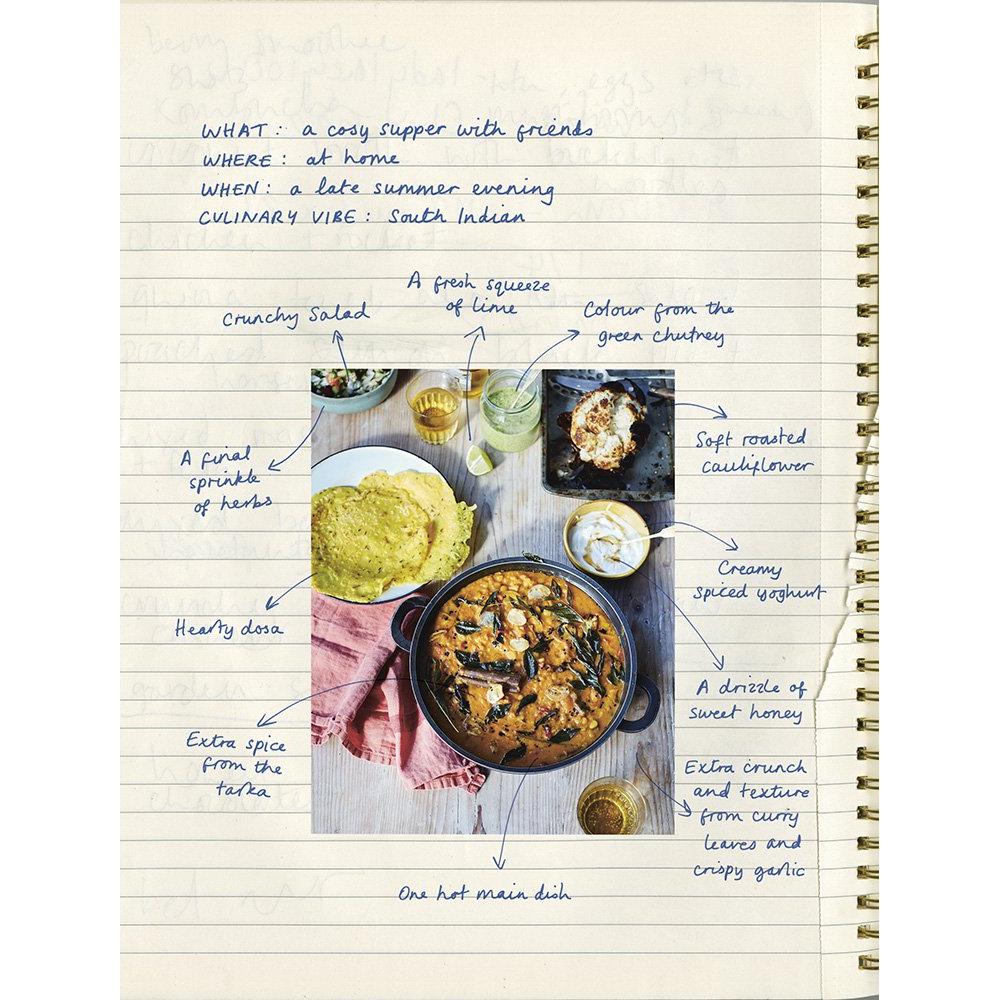 WHAT: a cosy supper with friends
WHERE: at home
WHEN: a late summer evening
CULINARY VIBE: South Indian
A fresh squeeze
of lime
Crunchy Salad
Colour from the
green chutney
Soft roasted
cauliflower
A final
sprinkle
of herbs
Creamy
spiced yoghurt
Hearty dosa
A drizzle of
sweet honey
Extra spice
from the
tarka
Extra crunch
and texture
from curry
leaves and
crispy garlic
One hot main dish